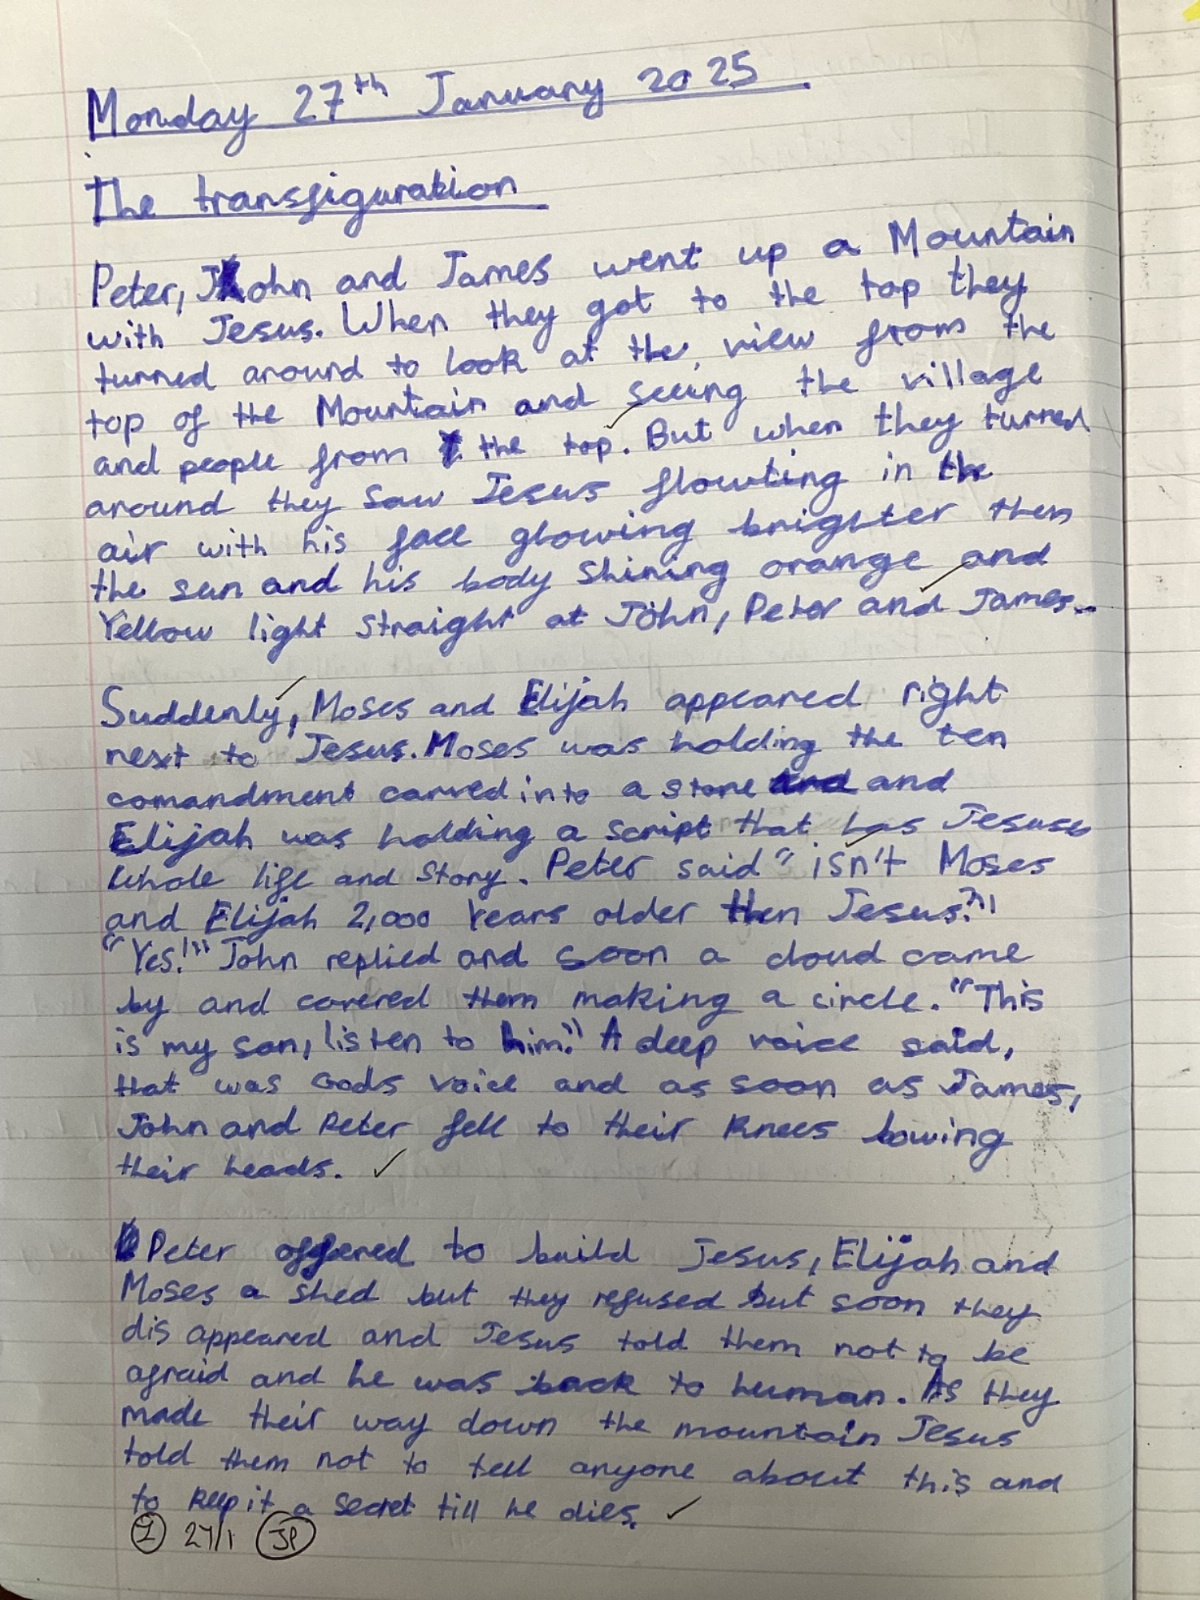 Monday 27th January 2025
The transfiguration
Peter, John and James went up a Mountain
with Jesus. When they got to the top they
turned around to look at the view from the
top of the Mountain and seeing the village
and people from the top. But when they turned
around they saw Jesus flowting in the
air with his face glowing brighter then
the sun and his body shining orange and
Yellow light straight at John, Peter and James..
Suddenly, Moses and Elijah appeared right
next to Jesus. Moses was holding the ten
comandment carved into a stone and
Elijah was holding a script that has Jesuse
whole life and story. Peter said "isn't Moses
and Elijah 2,000 Years older then Jesus?"
"Yes!" John replied and soon a cloud came
by and covered them making a circle. "This
is my son, listen to him." A deep voice said,
that was Gods voice and as soon as James,
John and Peter fell to their knees bowing
their heads.
Peter offered to build Jesus, Elijah and
Moses a shed but they refused but soon they
disappeared and Jesus told them not to be
afraid and he was back to human. As they
made their way down the mountain Jesus
told them not to tell anyone about this and
to keep it a secret till he dies.
27/1 JP